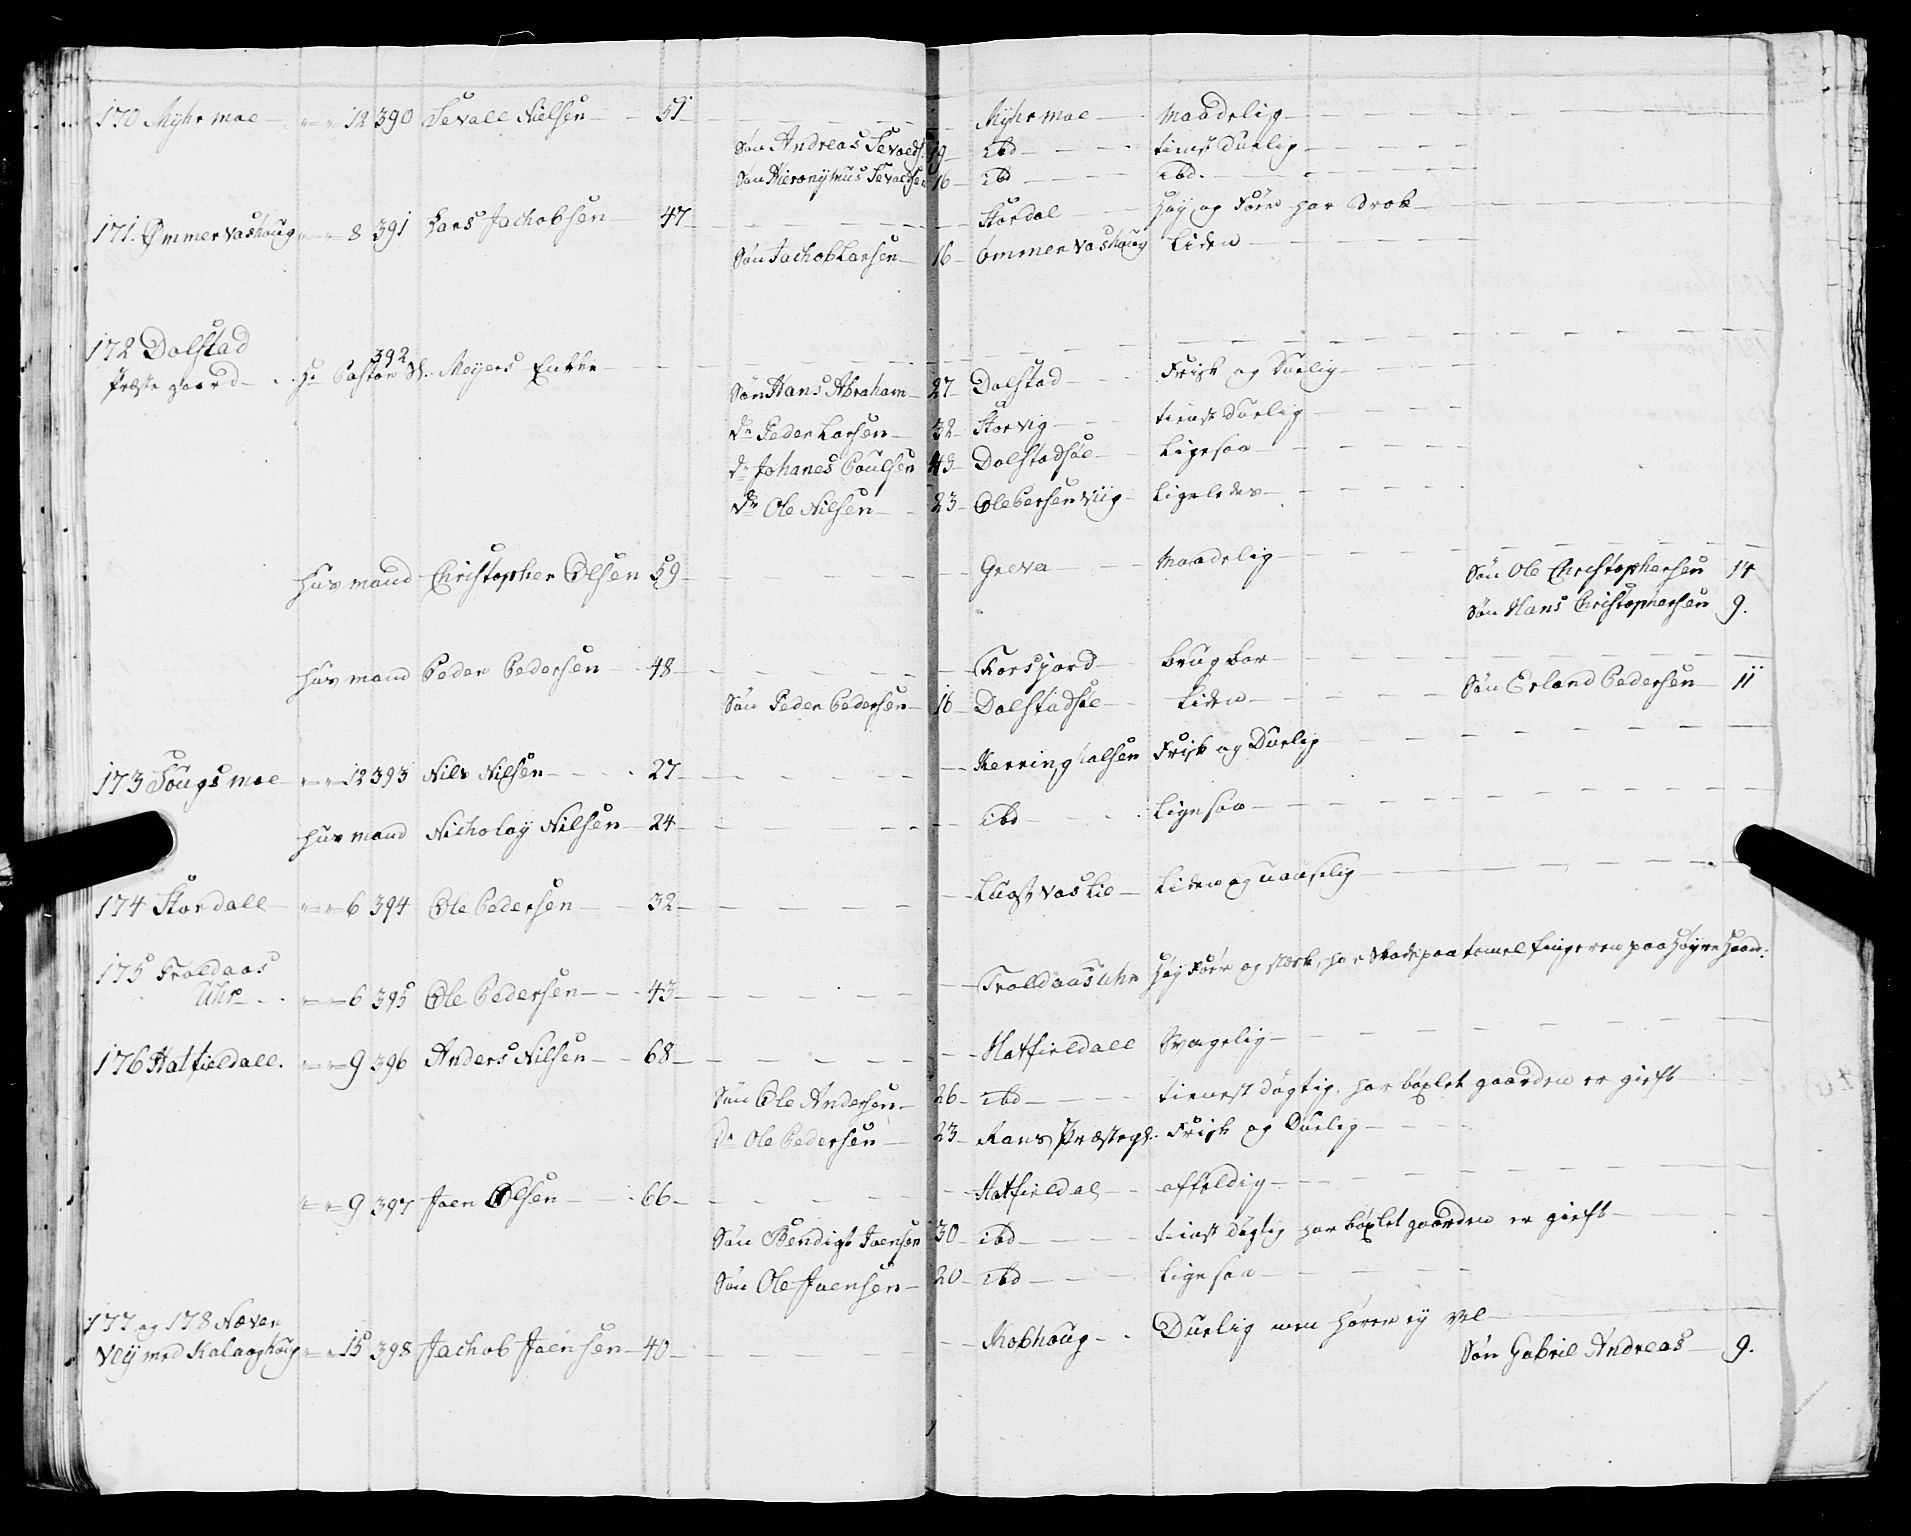 170 Myhr moe „ „ 12 390 Sevall Nielsen 51 Myhr moe Maadelig
Søn Andreas Sevalds. 19 ibd tienst Duelig
Søn Hieronijmus Sevaldsen 16 ibd ibd.
171. Ømmervashaug „ „ 8 391 Lars Jachobsen 47 Stordal Høy og Før har Brok
Søn Jachob Larsen 16 Ømmervashaug Liden
172 Dolstad
Præste gaard Hr Pastor 392 Sl. Meyers Enkke
Søn Hans Abraham 27 Dolstad Frisk og Duelig
Dr Peder Larsen 32 Storvig tienst Duelig
Dr Johanes Poulsen 43 Dolstadsøe Ligesaa
Dr Ole Nilsen 23 Ole Persen Viig Ligeledes
Huusmand Christopher Olsen 59 Greva Maadelig Søn Ole Christophersen 14
Søn Hans Christophersen 9.
Huusmand Peder Pedersen 48 Forsjord brugbar
Søn Peder Pedersen 16 Dolstadsøe Liden Søn Erland Pedersen 11
173 Sougsmoe „ „ 12 393 Nils Nilsen 27 Kerringhalsen Frisk og Duelig
Huusmand Nicholay Nilsen 24 ibd Ligesaa
174 Stordall „ „ 6 394 Ole Pedersen 32 Liden og uanselig
175 Troldaas
Uhr „ „ 6 395 Ole Pedersen 43 Troldaasuhr Høy Før og stærk, har Skade paa tomel fingeren paa Høyre Haand.
176 Hatfieldall. „ „ 9 396 Anders Nilsen 68 Hatfieldall Svagelig
Søn Ole Andersen 26 ibd tienest døgtig, har bøxlet gaarden er gieft
Dr Ole Pedersen 23 Rans Præstegl. Frisk og Duelig
„ „ 9 397 Joen Olsen 66 Hatfieldal affeldig
Søn Bendigt Joensen 30 ibd tienst døgtig har bøxlet gaarden er gieft
Søn Ole Joensen 20 ibd Ligesaa
177 og 178 Næver
Vej med Kalaaghoug „ „ 15 398 Jachob Joensen 40 Kobhoug Duelig men hører ey vel
Søn Gabriel Andreas 9.